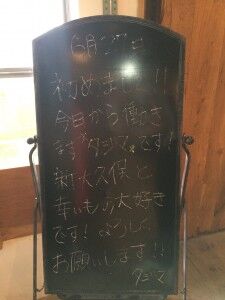 6月
初めまして!!
今日から働き
ます タジマです!
新大久保と
大好き
です! よろしく
お願いします!!
タジマ